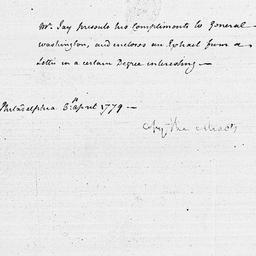 Mr. Jay presents his compliments to General
Washington, and encloses an Extract from a
Letter in a certain Degree interesting —
Philadelphia 5th April 1779 —
Copy the